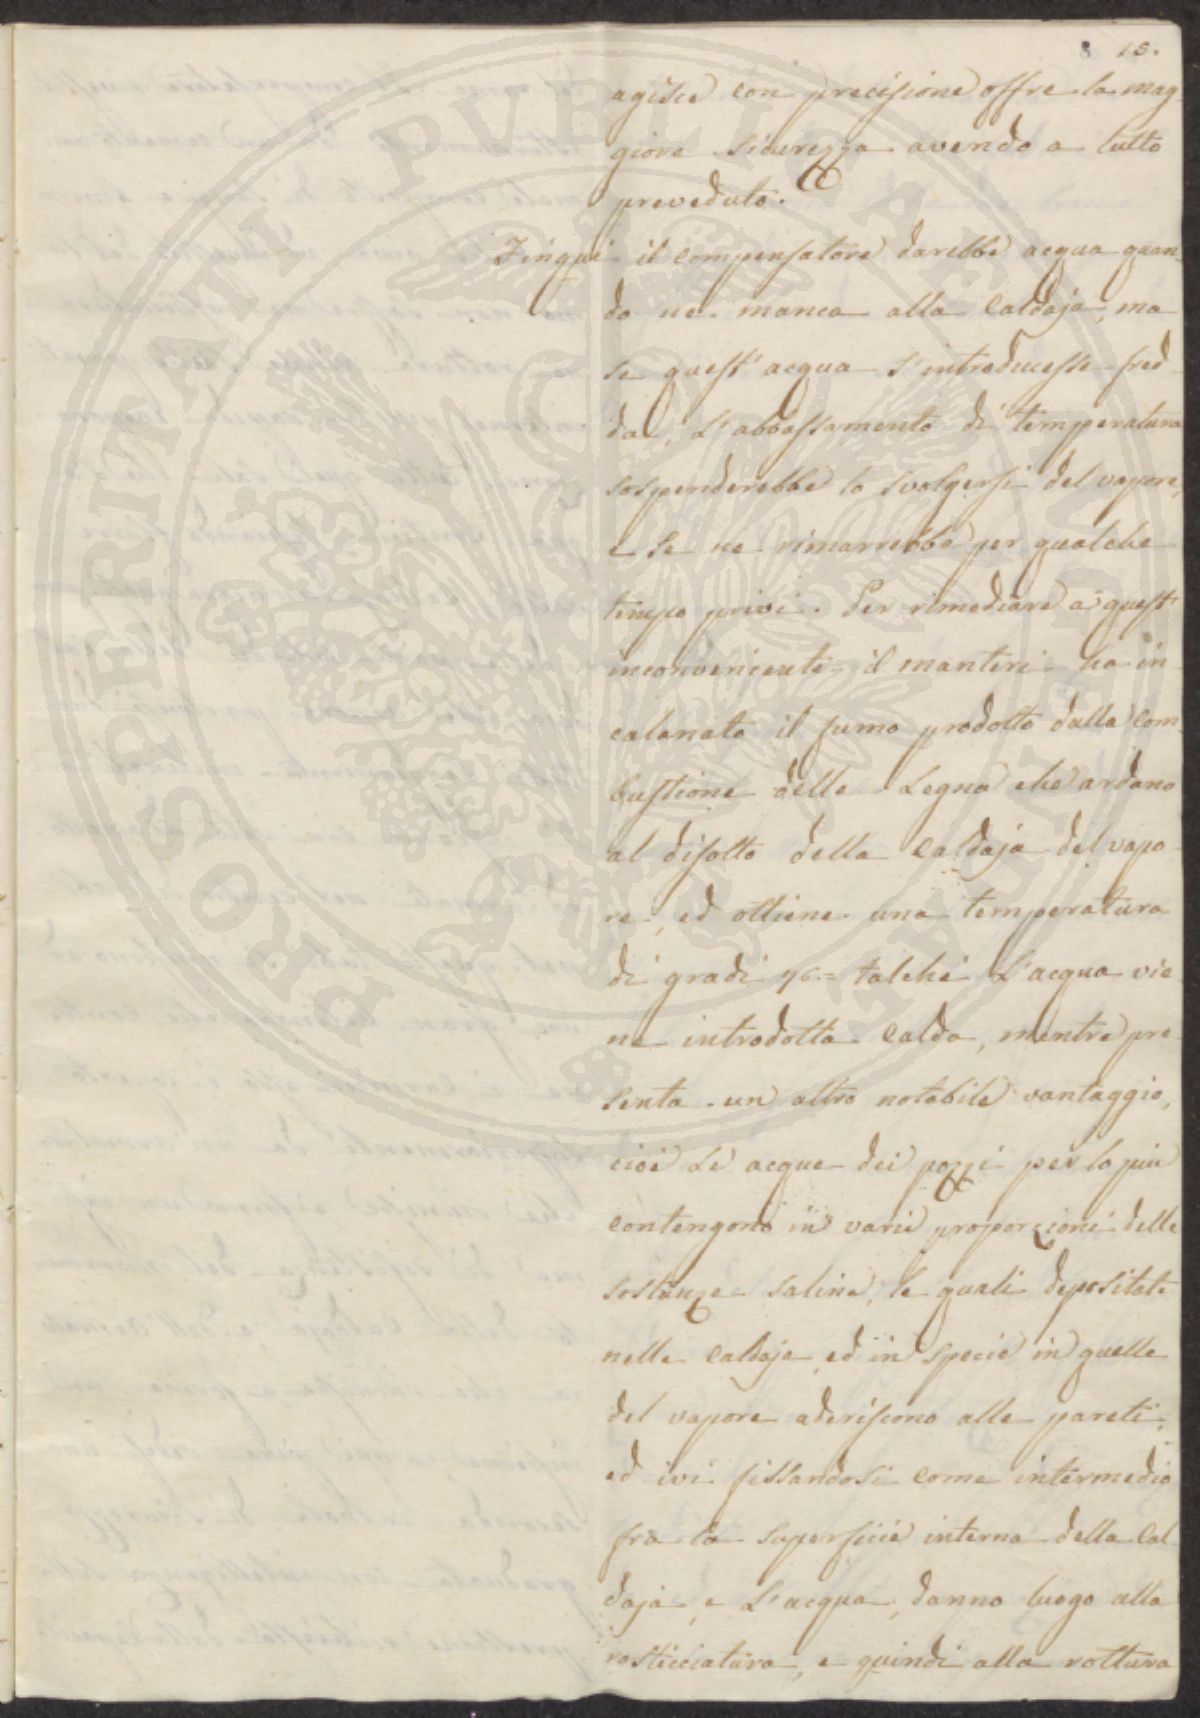 8 15.
agisce con precisione offre la mag-
giore sicurezza avendo a tutto
preveduto.
Finqui il compensatore darebbe acqua quan-
do ne manca alla Caldaja, ma
se quest' acqua s'introducesse fred-
da, L'abbassamento di temperatura
sospenderebbe lo svolgersi del vapore,
e se ne rimarrebbe per qualche
tempo privi. Per rimediare a quest'
inconveniente il Manteri ha in-
calanato il fumo prodotto dalla Com-
bustione delle Legna che ardano
al disotto della Caldaja del vapo-
re, ed ottiene una temperatura
di gradi 76 = talchè L'acqua vie-
ne introdotta Calda, mentre pre-
senta un altro notabile vantaggio,
cioè Le acque dei pozzi per lo più
contengono in varie proporzioni delle
sostanze saline, le quali depositate
nelle Caldaje, ed in specie in quelle
del vapore aderiscono alle pareti,
ed ivi fissandosi come intermedio
fra la superficie interna della Cal-
daja, e L'acqua, danno luogo alla
rosticciatura, e quindi alla rottura
PROSPERITATI PVBLICAE AVGENDAE